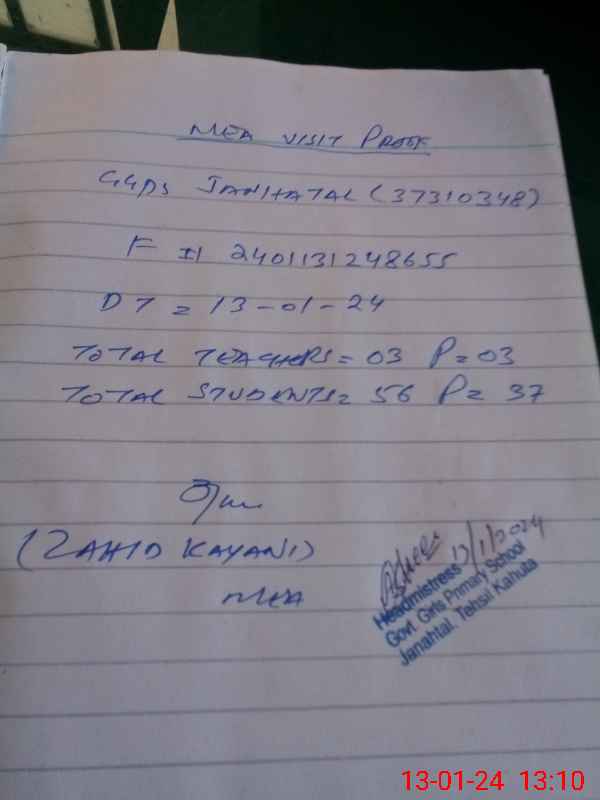 MEA VISIT PROOF
GGPS JANIHATAL (37310348)
F II 2401131248655
DT = 13-01-24
TOTAL TEACHERS = 03 P = 03
TOTAL STUDENTS = 56 P = 37
(ZAHID KAYANI)
MEA
13/1/2024
Headmistress
Govt. Girls Primary School
Janahtal, Tehsil Kahuta
13-01-24 13:10